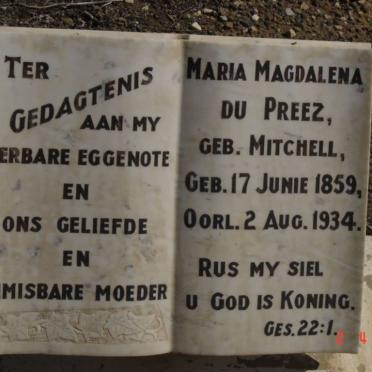 TER
GEDAGTENIS
AAN MY
ERBARE EGGENOTE
EN
ONS GELIEFDE
EN
MISBARE MOEDER
MARIA MAGDALENA
DU PREEZ,
GEB. MITCHELL,
GEB. 17 JUNIE 1859,
OORL. 2 AUG. 1934.
RUS MY SIEL
U GOD IS KONING.
GES. 22:1.